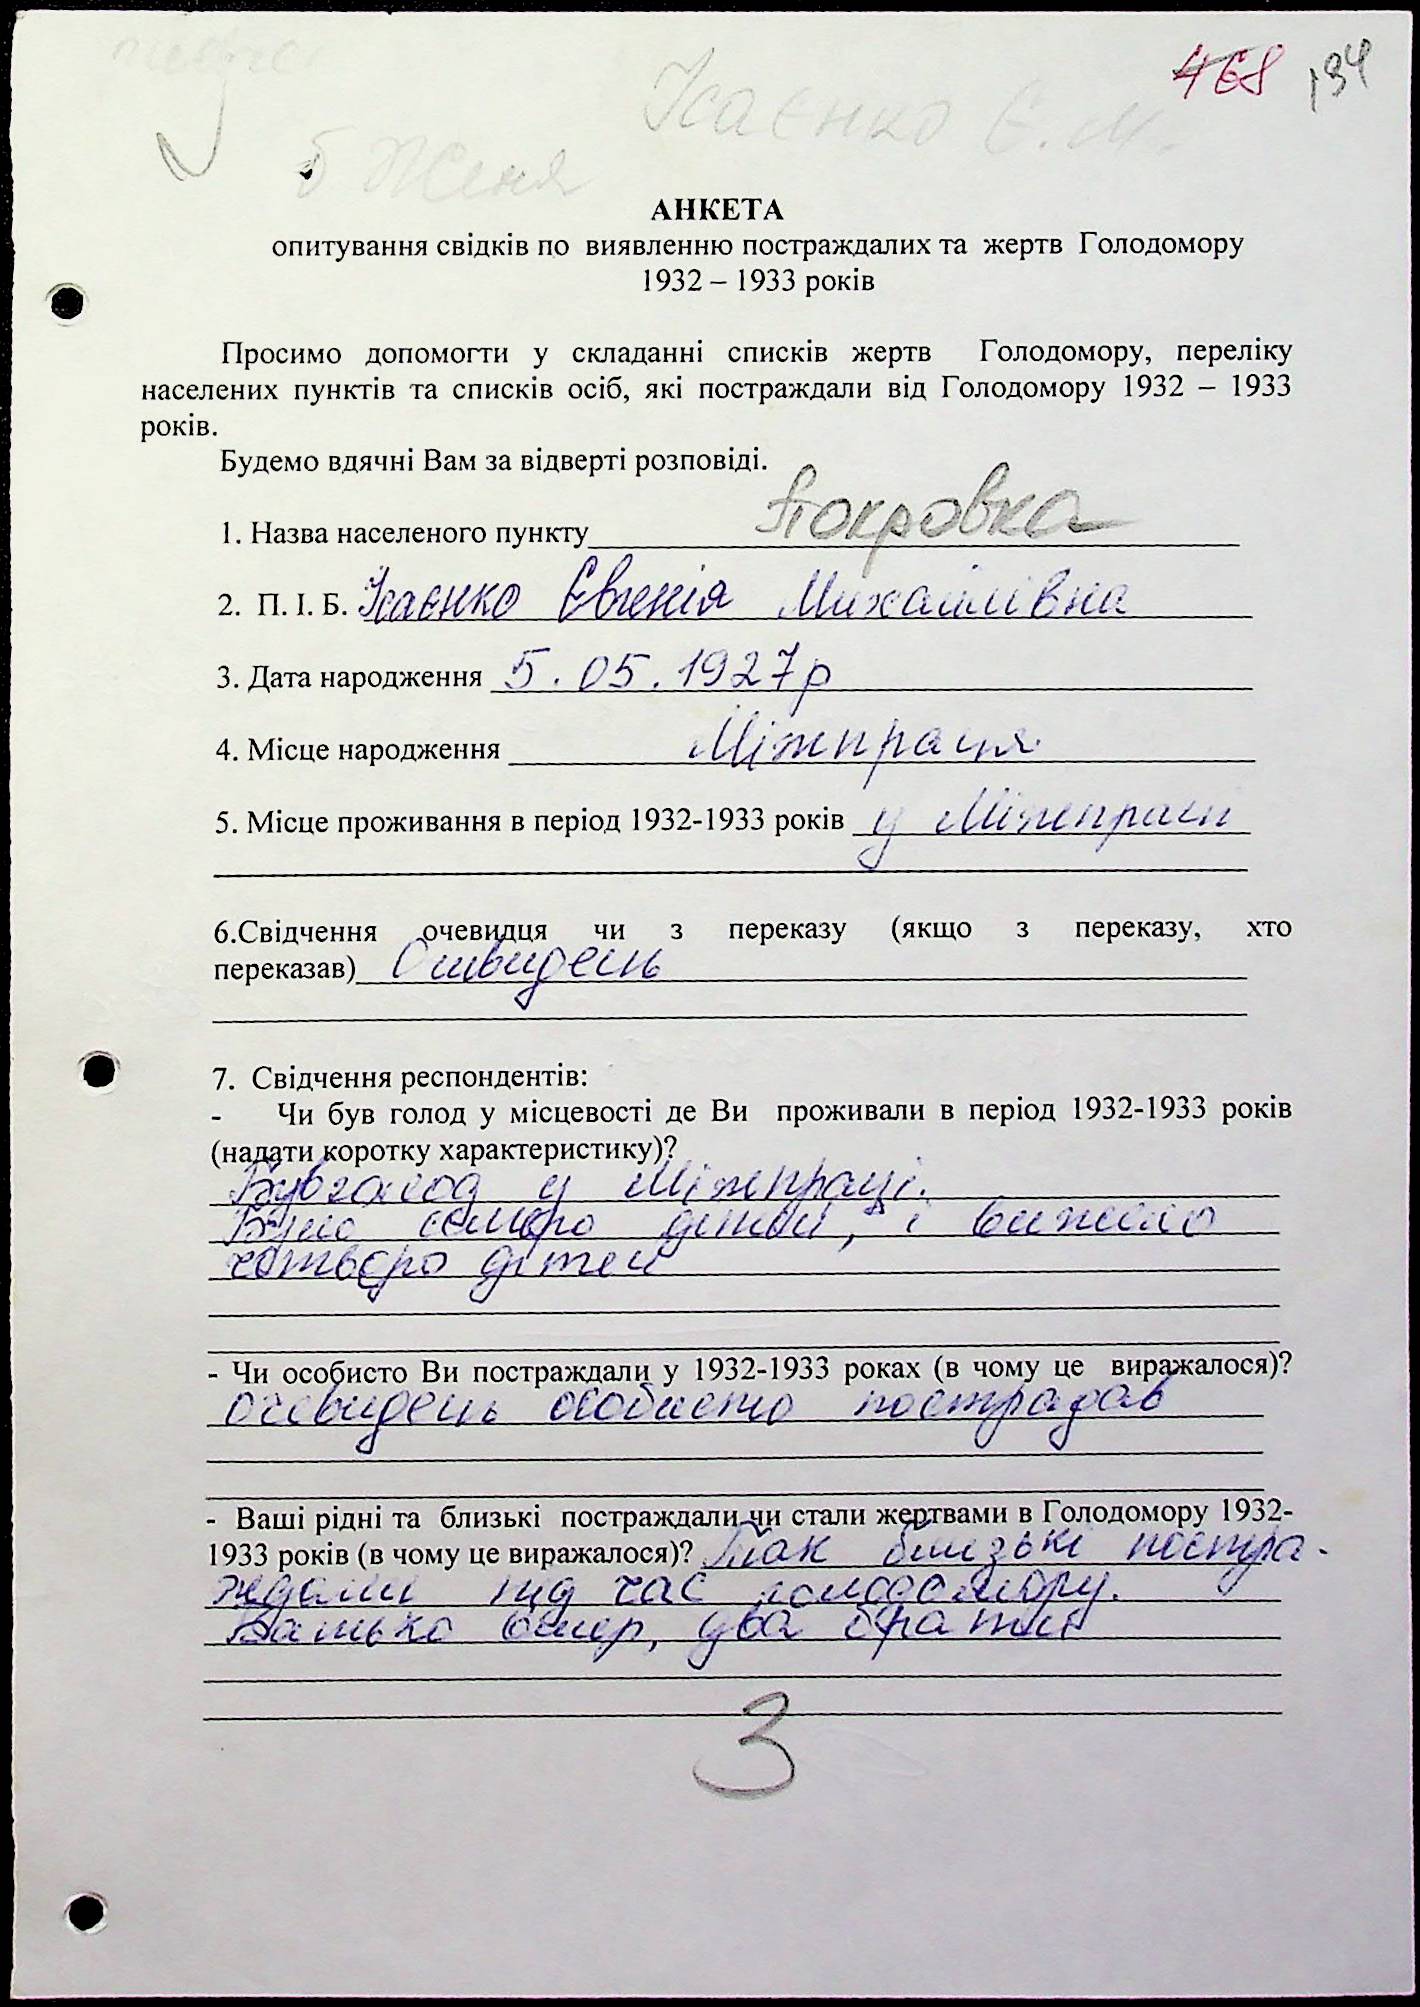 468 194
Ісаєнко Є. М.
б Женя
АНКЕТА
опитування свідків по виявленню постраждалих та жертв Голодомору
1932 – 1933 років
Просимо допомогти у складанні списків жертв Голодомору, переліку
населених пунктів та списків осіб, які постраждали від Голодомору 1932 – 1933
років.
Будемо вдячні Вам за відверті розповіді.
1. Назва населеного пункту Покровка
2. П. І. Б. Ісаєнко Євгенія Михайлівна
3. Дата народження 5.05.1927р
4. Місце народження Міжпраця
5. Місце проживання в період 1932-1933 років у Міжпраці
6.Свідчення очевидця чи з переказу (якщо з переказу, хто
переказав) Очевидець
7. Свідчення респондентів:
- Чи був голод у місцевості де Ви проживали в період 1932-1933 років
(надати коротку характеристику)?
Був голод у Міжпраці.
Було семеро дітей, і вижило
четверо дітей
- Чи особисто Ви постраждали у 1932-1933 роках (в чому це виражалося)?
очевидець особисто пострадав
- Ваші рідні та близькі постраждали чи стали жертвами в Голодомору 1932-
1933 років (в чому це виражалося)? Так близькі постра-
ждали під час голодомору.
Батько вмер, два брати
3